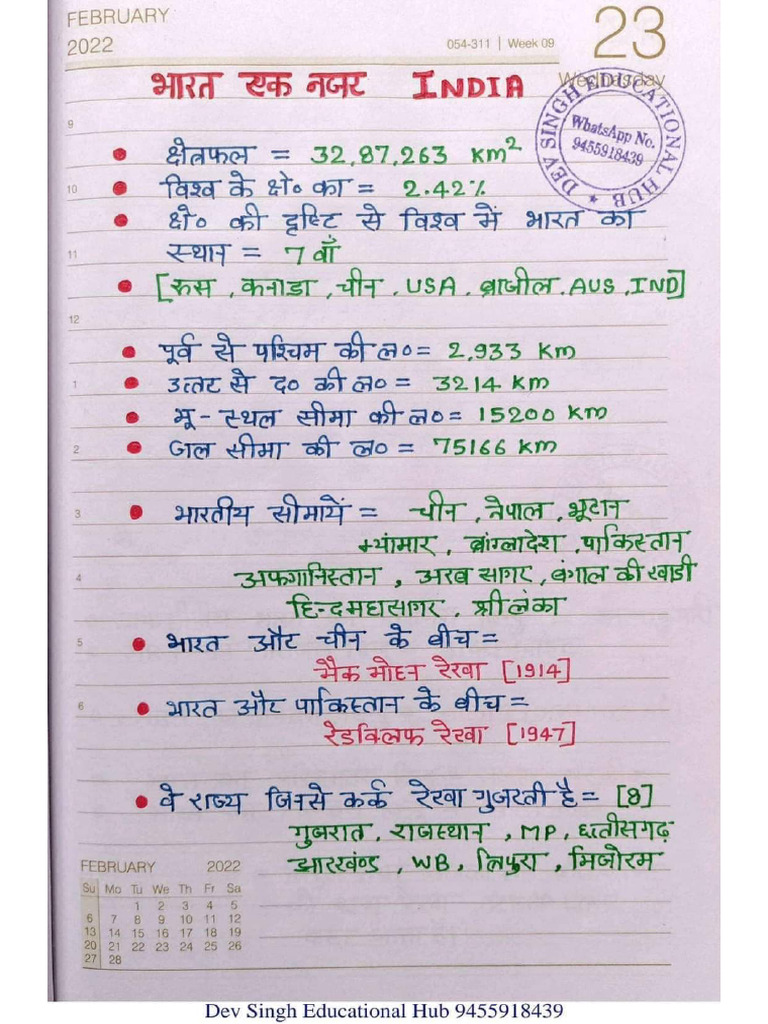 FEBRUARY
2022
054-311 | Week 09
23
Wednesday
भारत एक नजर INDIA
DEV SINGH EDUCATIONAL HUB
WhatsApp No.
9455918439
9
• क्षेत्रफल = 32,87,263 km²
10
• विश्व के क्षे० का = 2.42%
• क्षे० की दृष्टि से विश्व में भारत का
11
स्थान = 7 वाँ
• [रूस, कनाडा, चीन, USA, ब्राजील, AUS, IND]
12
• पूर्व से पश्चिम की ल० = 2,933 Km
1
• उत्तर से द० की ल० = 3214 km
• भू-स्थल सीमा की ल० = 15200 km
2
• जल सीमा की ल० = 75166 km
3
• भारतीय सीमायें = चीन, नेपाल, भूटान
म्यांमार, बांग्लादेश, पाकिस्तान
4
अफगानिस्तान, अरब सागर, बंगाल की खाडी
हिन्दमहासागर, श्रीलंका
5
• भारत और चीन के बीच =
मैक मोहन रेखा [1914]
6
• भारत और पाकिस्तान के बीच =
रेडक्लिफ रेखा [1947]
• वे राज्य जिनसे कर्क रेखा गुजरती है = [8]
गुजरात, राजस्थान, MP, छत्तीसगढ़
झारखण्ड, WB, त्रिपुरा, मिजोरम
FEBRUARY 2022
Su Mo Tu We Th Fr Sa
1 2 3 4 5
6 7 8 9 10 11 12
13 14 15 16 17 18 19
20 21 22 23 24 25 26
27 28
Dev Singh Educational Hub 9455918439